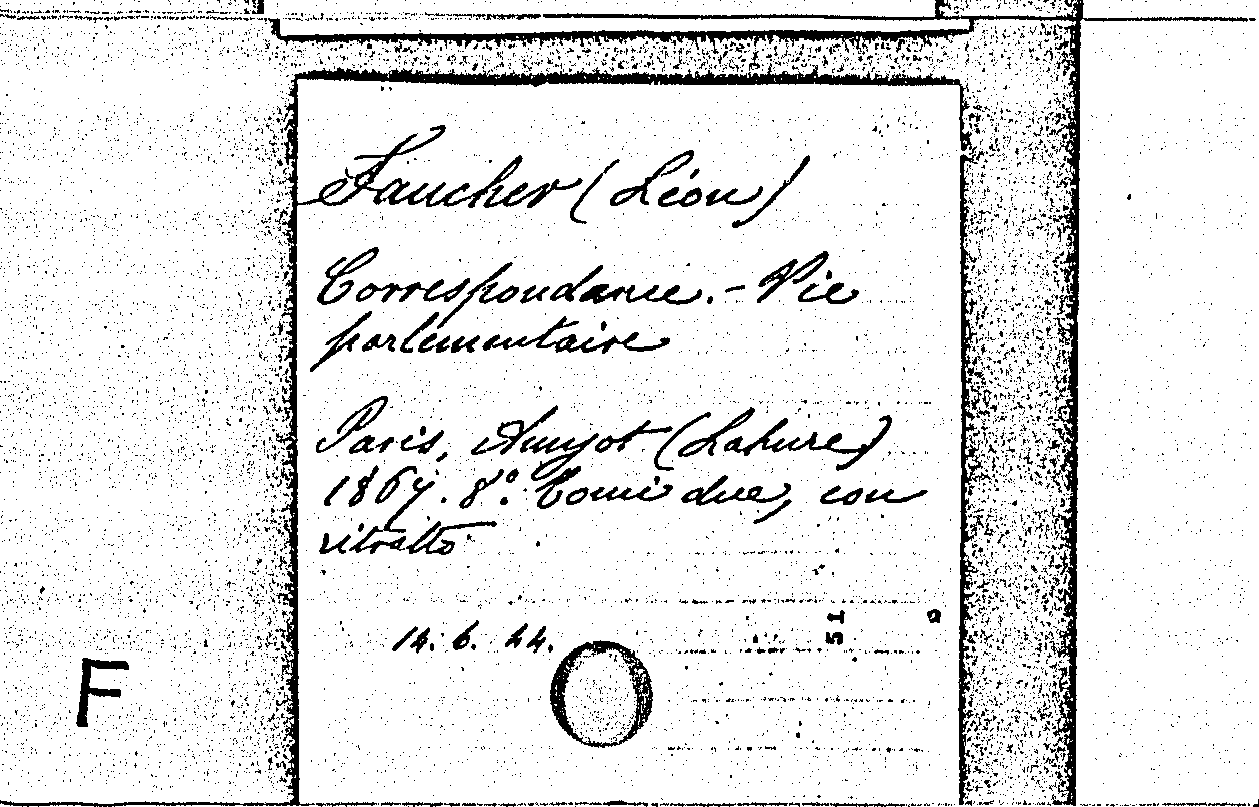 Faucher (Léon)
Correspondance. - Vie
parlementaire
Paris, Amyot (Lahure)
1867. 8°. Tomi due, con
ritratto
14. 6. 44.
51
F